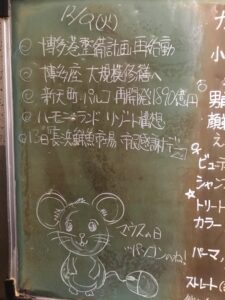 12/9(火)
博多港整備計画再始動
博多座 大規模修繕へ
新天町・パルコ 再開発1590億円
ハーモニーランド リゾート構想
13日長浜鮮魚市場 市民感謝デー
マウスの日
パソコンのね!
小
男
顔
え
ビュー
シャン
トリート
カラー
パーマ,
ストレート